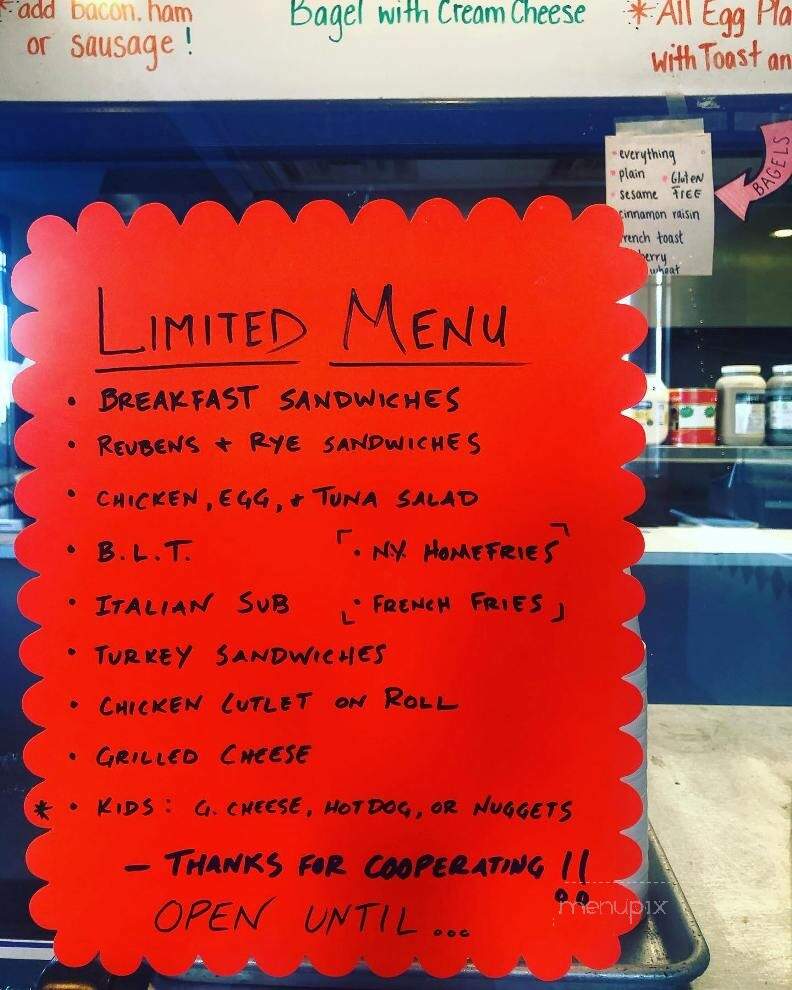 * add bacon, ham
or sausage!
Bagel with Cream Cheese
* All Egg Pla
with Toast an
• everything
• plain • Gluten
• sesame FREE
cinnamon raisin
french toast
berry
wheat
BAGELS
LIMITED MENU
• BREAKFAST SANDWICHES
• REUBENS + RYE SANDWICHES
• CHICKEN, EGG, + TUNA SALAD
• B.L.T. • NY HOMEFRIES
• ITALIAN SUB • FRENCH FRIES
• TURKEY SANDWICHES
• CHICKEN CUTLET ON ROLL
• GRILLED CHEESE
* • KIDS: G. CHEESE, HOTDOG, OR NUGGETS
- THANKS FOR COOPERATING !!
OPEN UNTIL...
menupix